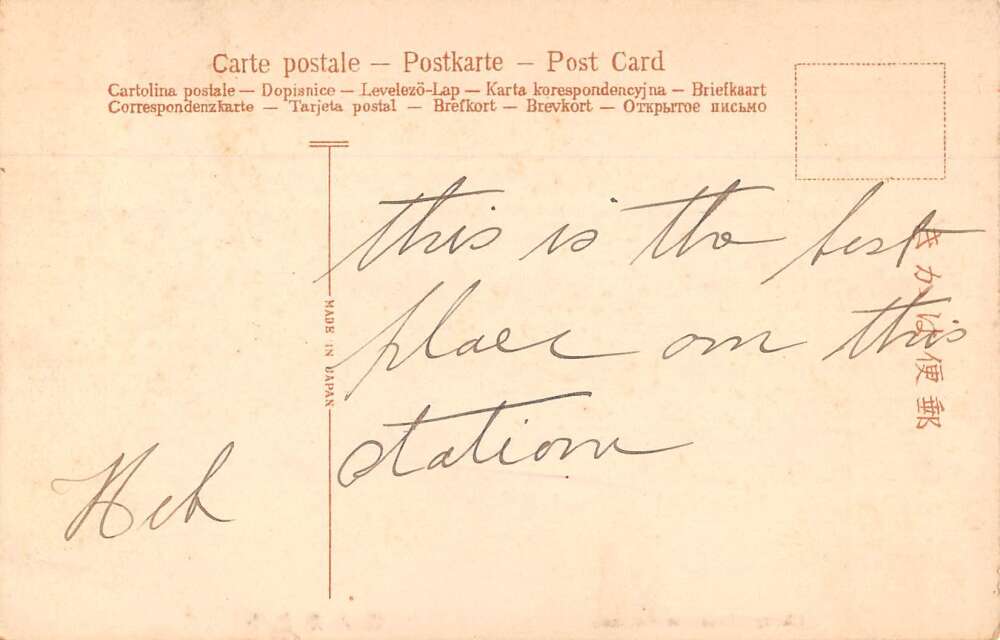 Carte postale — Postkarte — Post Card
Cartolina postale — Dopisnice — Levelező-Lap — Karta korespondencyjna — Briefkaart
Correspondenzkarte — Tarjeta postal — Brefkort — Brevkort — Открытое письмо
MADE IN JAPAN
きかは便郵
this is the best
place on this
station